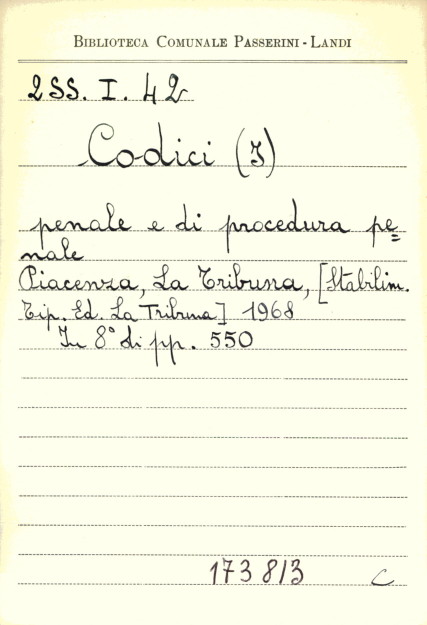 BIBLIOTECA COMUNALE PASSERINI - LANDI
2 SS. I. 42
Codici (I)
penale e di procedura pe=
nale
Piacenza, La Tribuna, [Stabilim.
Tip. Ed. La Tribuna] 1968
In 8° di pp. 550
173813 C